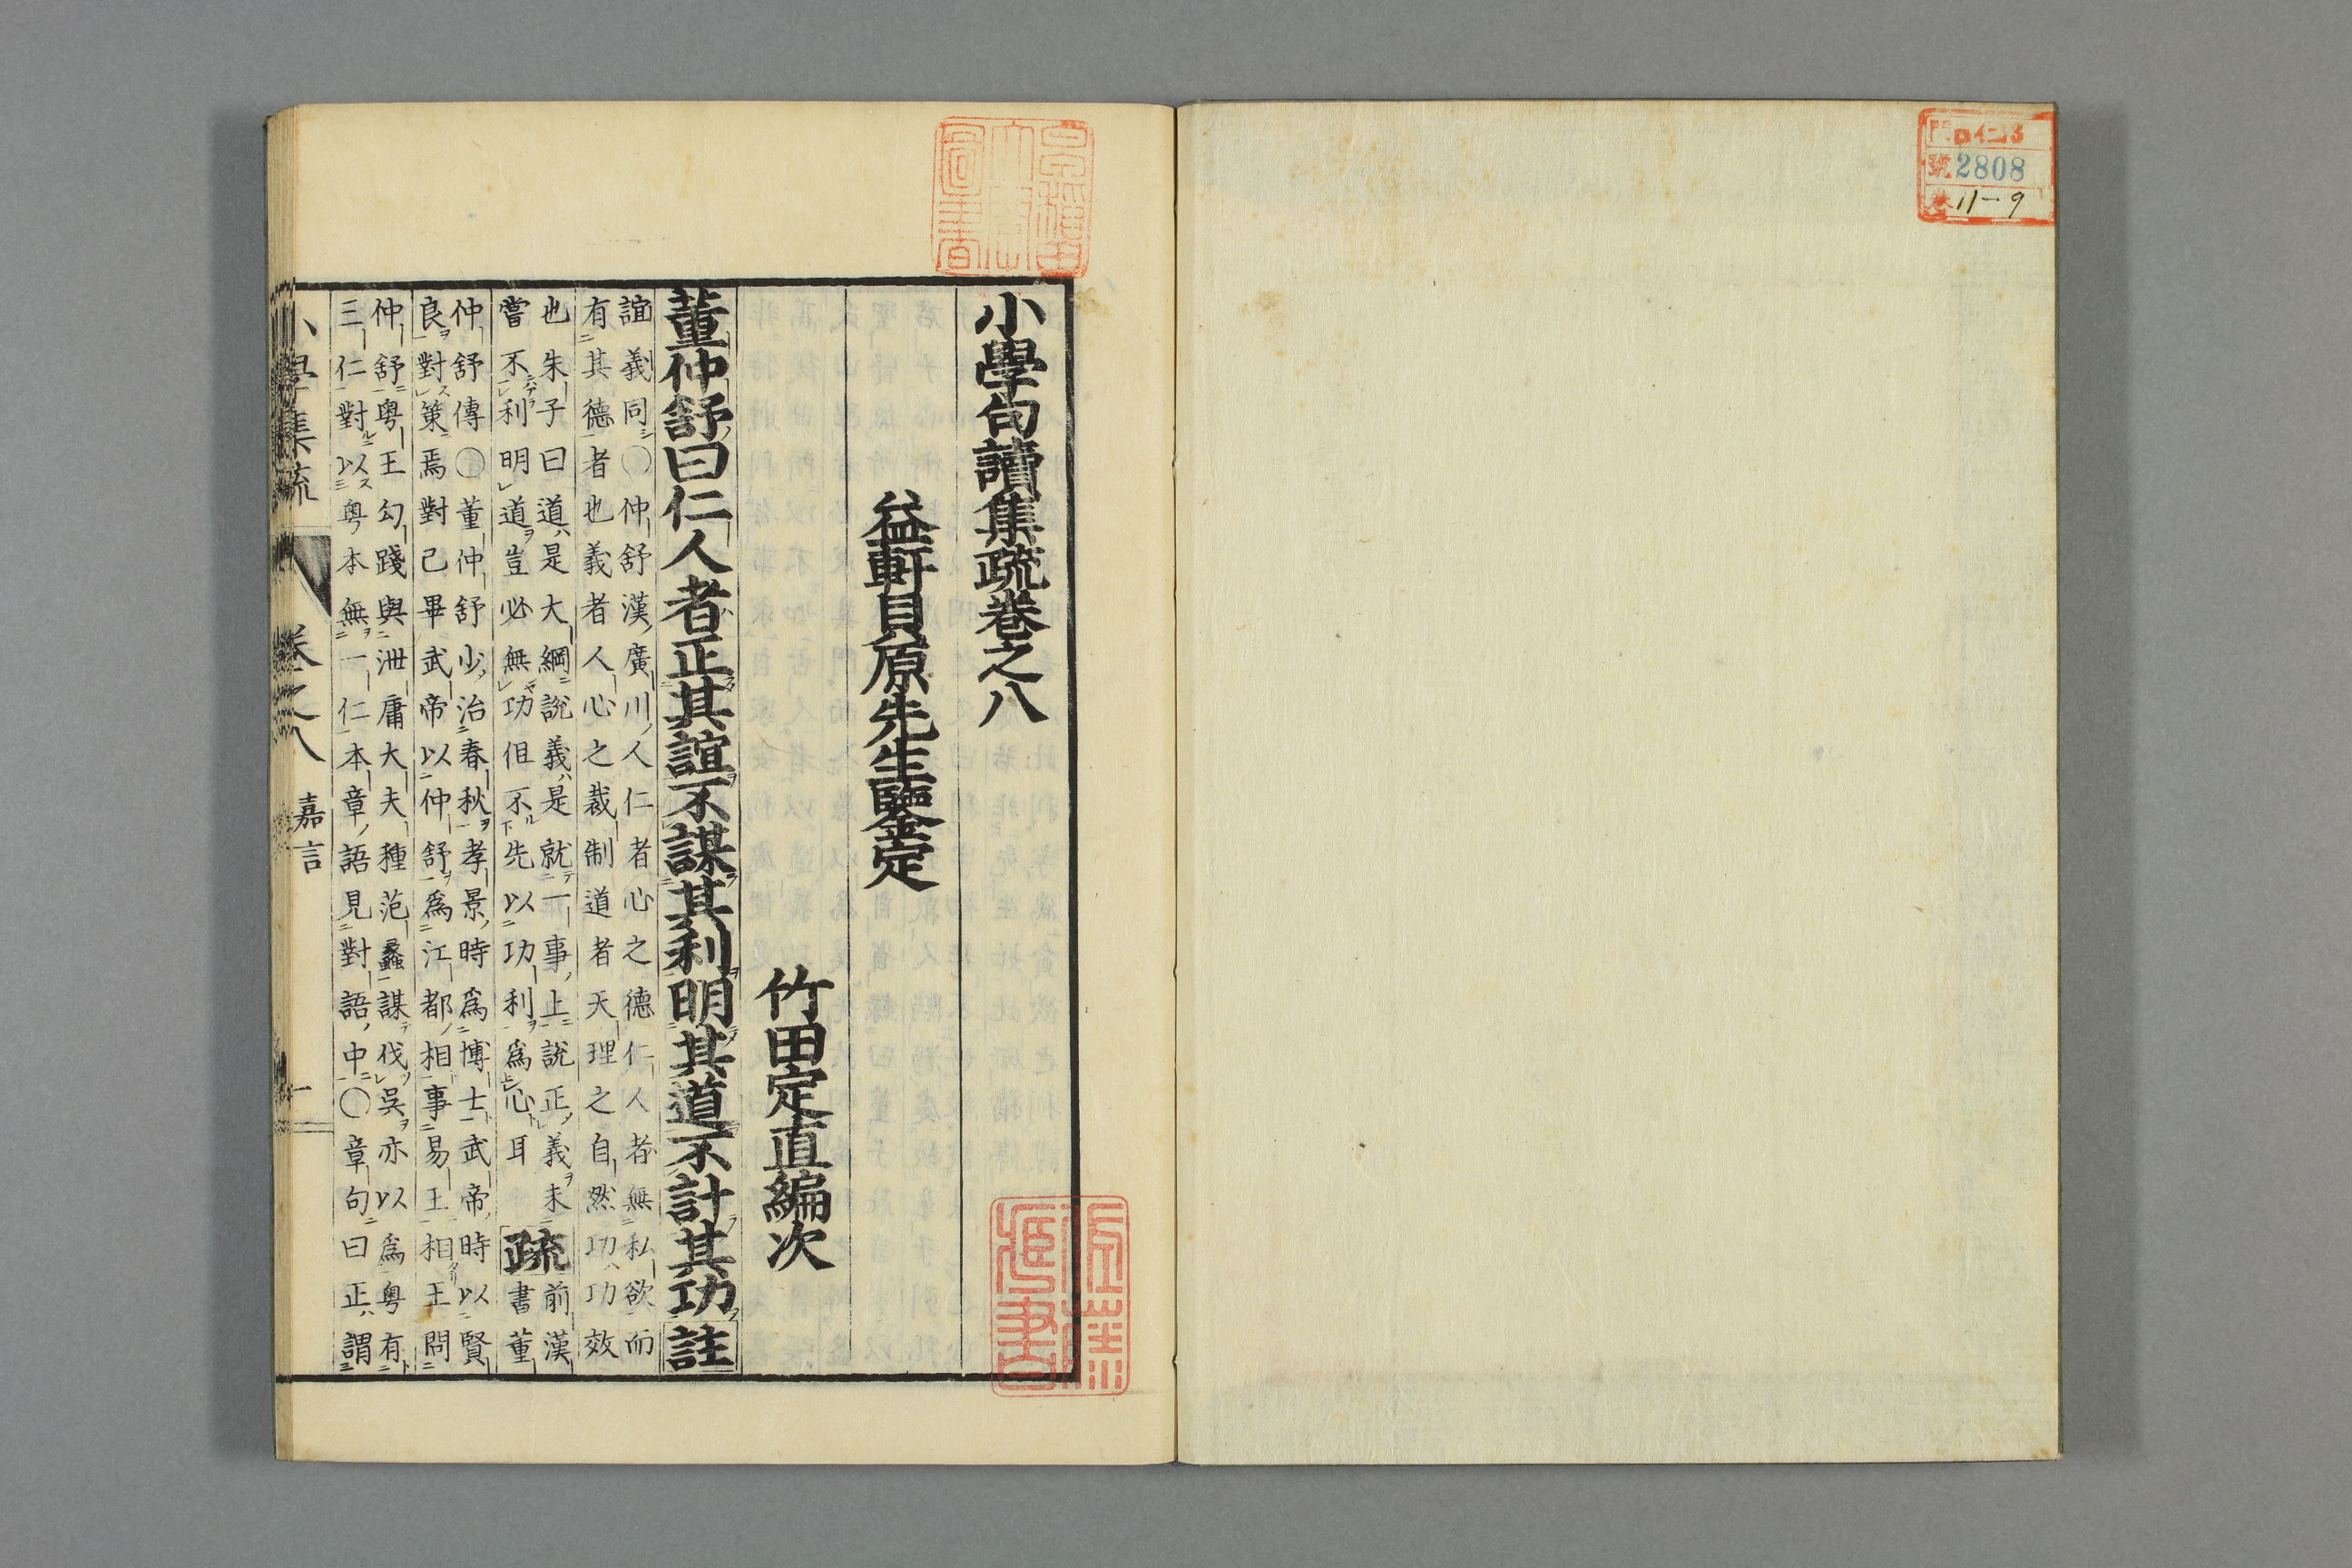 門 仁3
號 2808
卷 11-9
早稲田
大學
圖書
小學句讀集疏卷之八
益軒貝原先生鑒定
竹田定直編次
董仲舒曰仁人者正其誼不謀其利明其道不計其功 註
誼義同○仲舒漢廣川人仁者心之德仁人者無私欲而
有其德者也義者人心之裁制道者天理之自然功功效
也朱子曰道是大綱說義是就一事上說正義未
嘗不利明道豈必無功但不先以功利爲心耳
疏 前漢
書董
仲舒傳○董仲舒少治春秋孝景時爲博士武帝時以賢
良對策焉對已畢武帝以仲舒爲江都相事易王相王問
仲舒粤王勾踐與泄庸大夫種范蠡謀伐吳亦以爲粤有
三仁對以粤本無一仁本章語見對語中○章句曰正謂
小學集疏 卷之八 嘉言 一